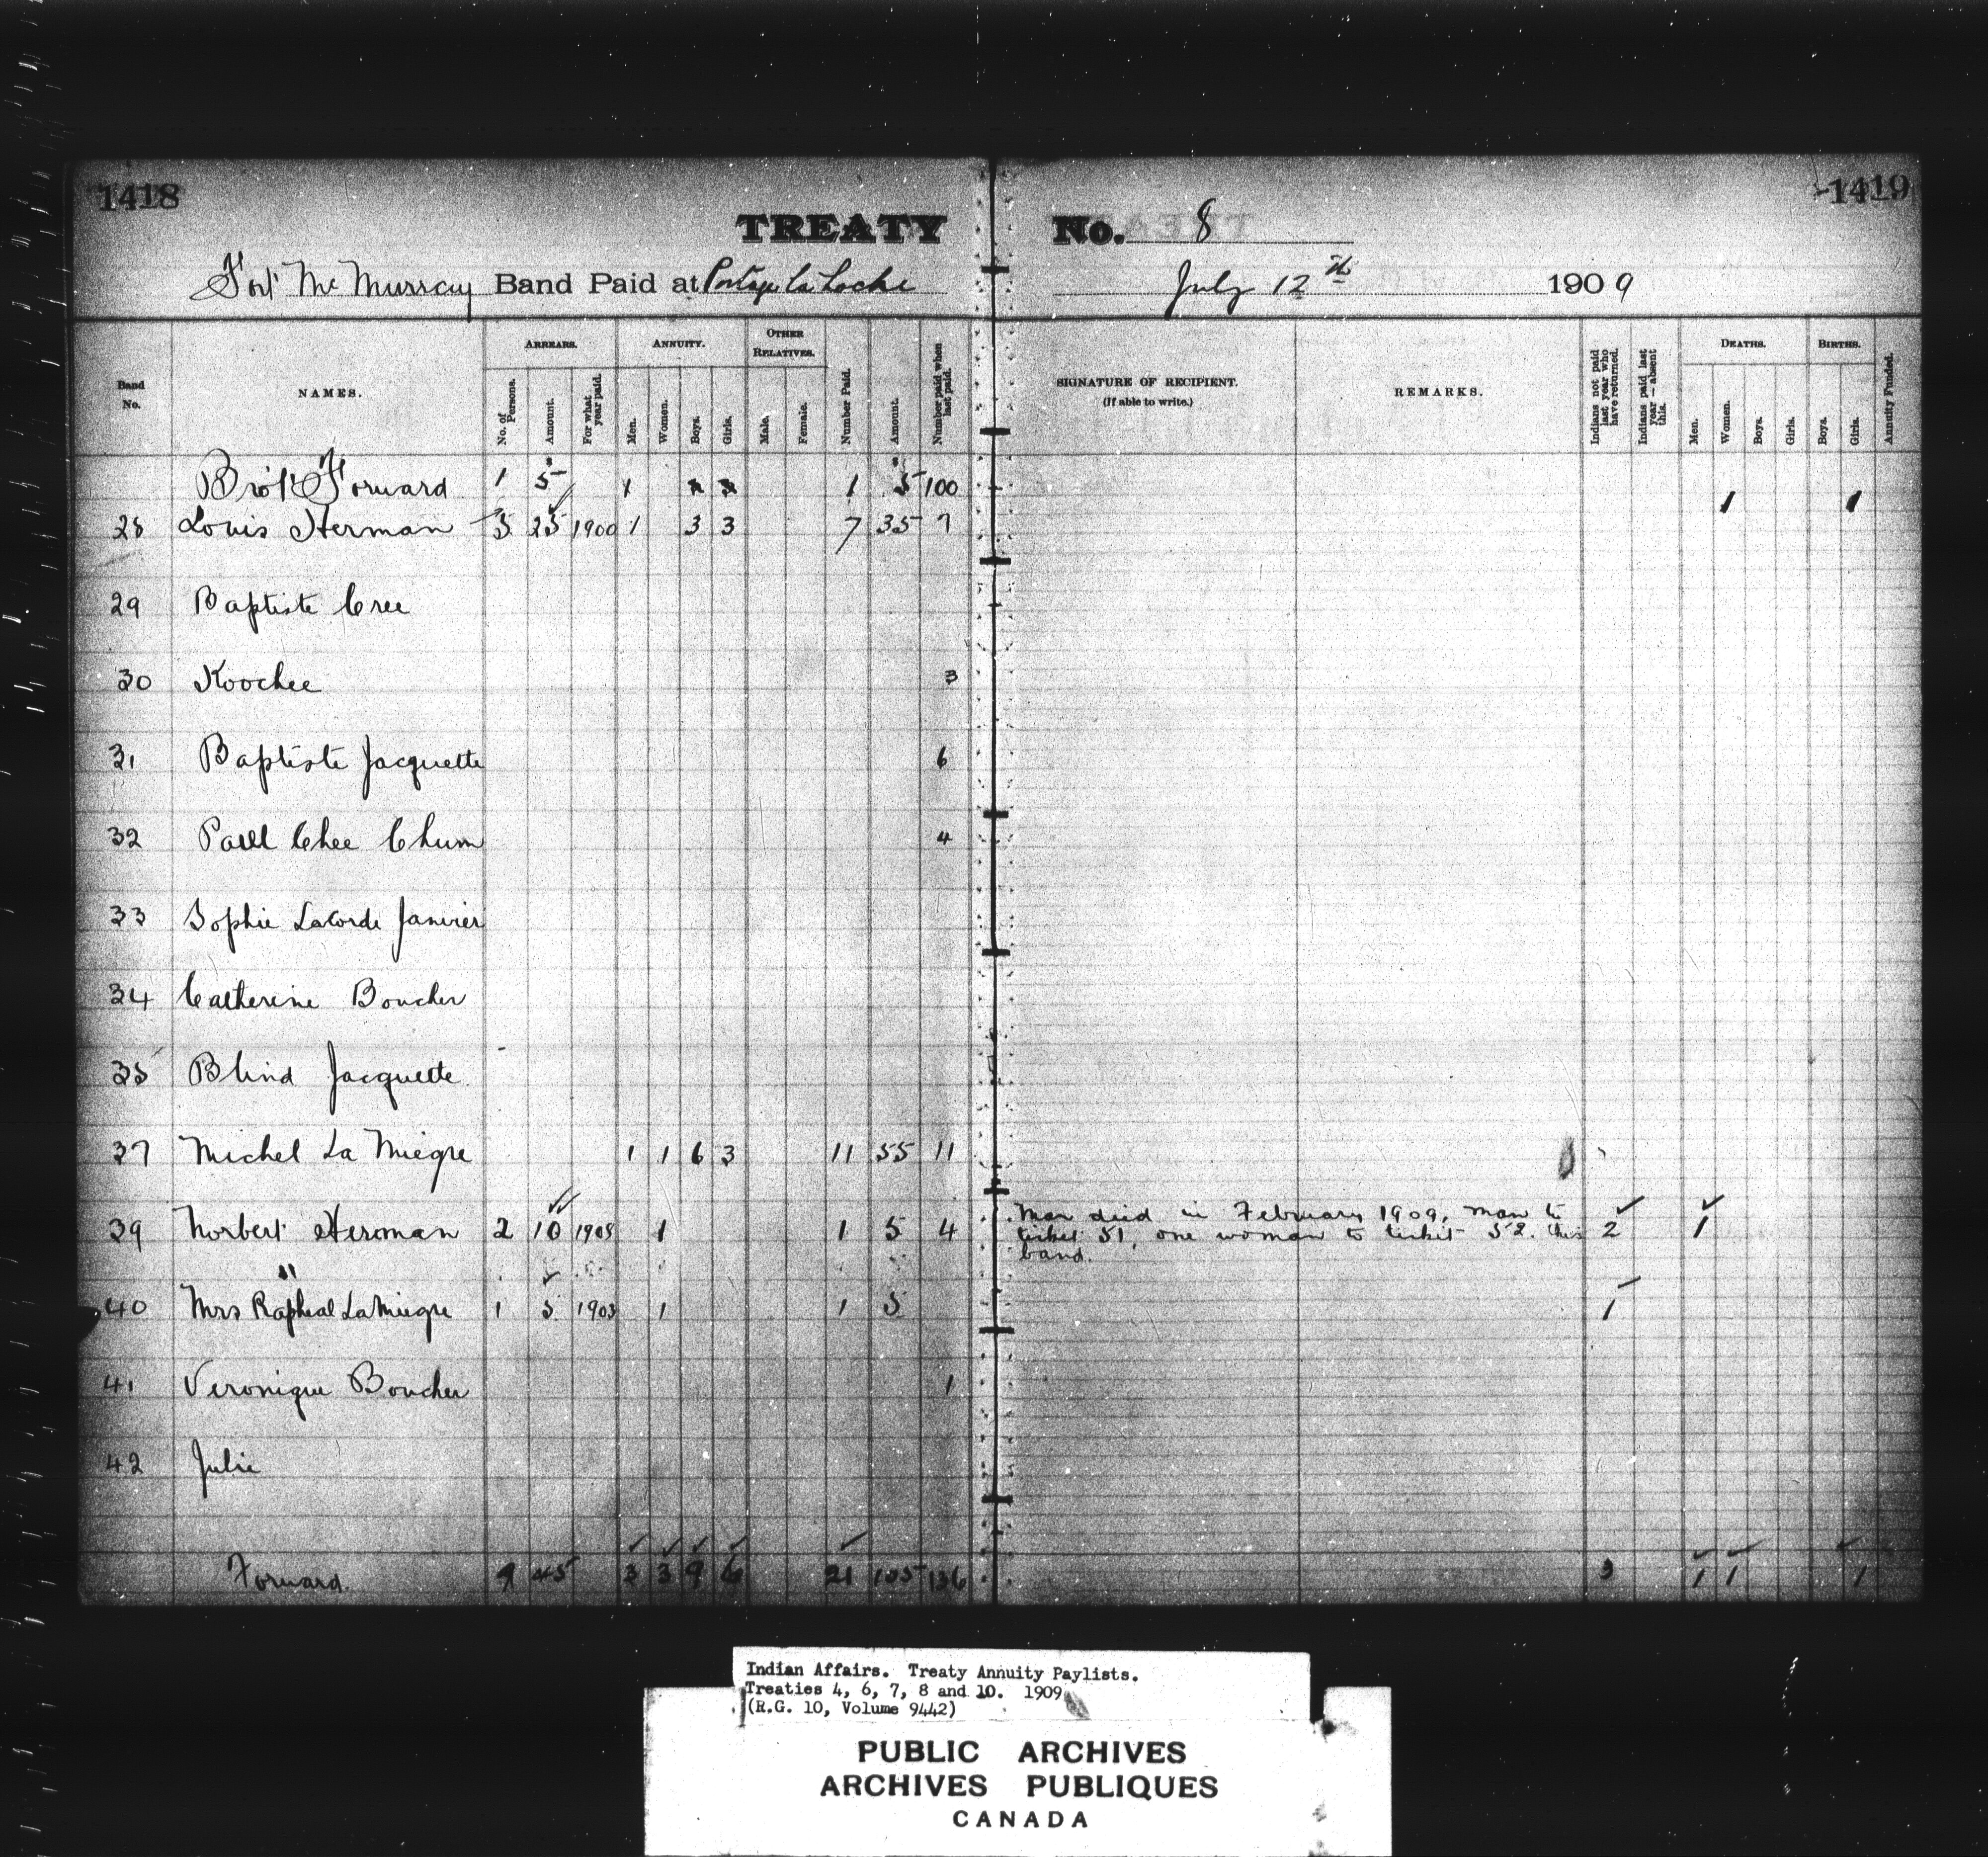 1418
1419
TREATY No. 8
Fort Mc Murray Band Paid at Portage La Loche July 12th 1909
Band No.
NAMES.
ARREARS.
No. of Persons.
Amount.
For what year paid.
ANNUITY.
Men.
Women.
Boys.
Girls.
OTHER RELATIVES.
Male.
Female.
Number Paid.
Amount.
Number paid when last paid.
SIGNATURE OF RECIPIENT.
(If able to write.)
REMARKS.
Indians not paid last year who have returned.
Indians paid last year—absent this.
DEATHS.
Men.
Women.
Boys.
Girls.
BIRTHS.
Boys.
Girls.
Annuity Funded.
Bro't Forward 1 5 1 1 5 100 1 1
28 Louis Herman 5 25 1900 1 3 3 7 35 7
29 Baptiste Cree
30 Koochee 3
31 Baptiste Jacquette 6
32 Paull Chee Chum 4
33 Sophie LaCorde Janvier
34 Catherine Boucher
35 Blind Jacquette
37 Michel La Niegre 1 1 6 3 11 55 11
39 Norbert Herman 2 10 1908 1 1 5 4 2 1
Man died in February 1909, man to
ticket 51, one woman to ticket 52. this
band.
"
40 Mrs Rapheal LaNiegre 1 5 1903 1 1 5 1
41 Veronique Boucher 1
42 Julie
Forward. 9 45 3 3 9 6 21 105 136 3 1 1 1
Indian Affairs. Treaty Annuity Paylists.
Treaties 4, 6, 7, 8 and 10. 1909
(R.G. 10, Volume 9442)
PUBLIC ARCHIVES
ARCHIVES PUBLIQUES
CANADA